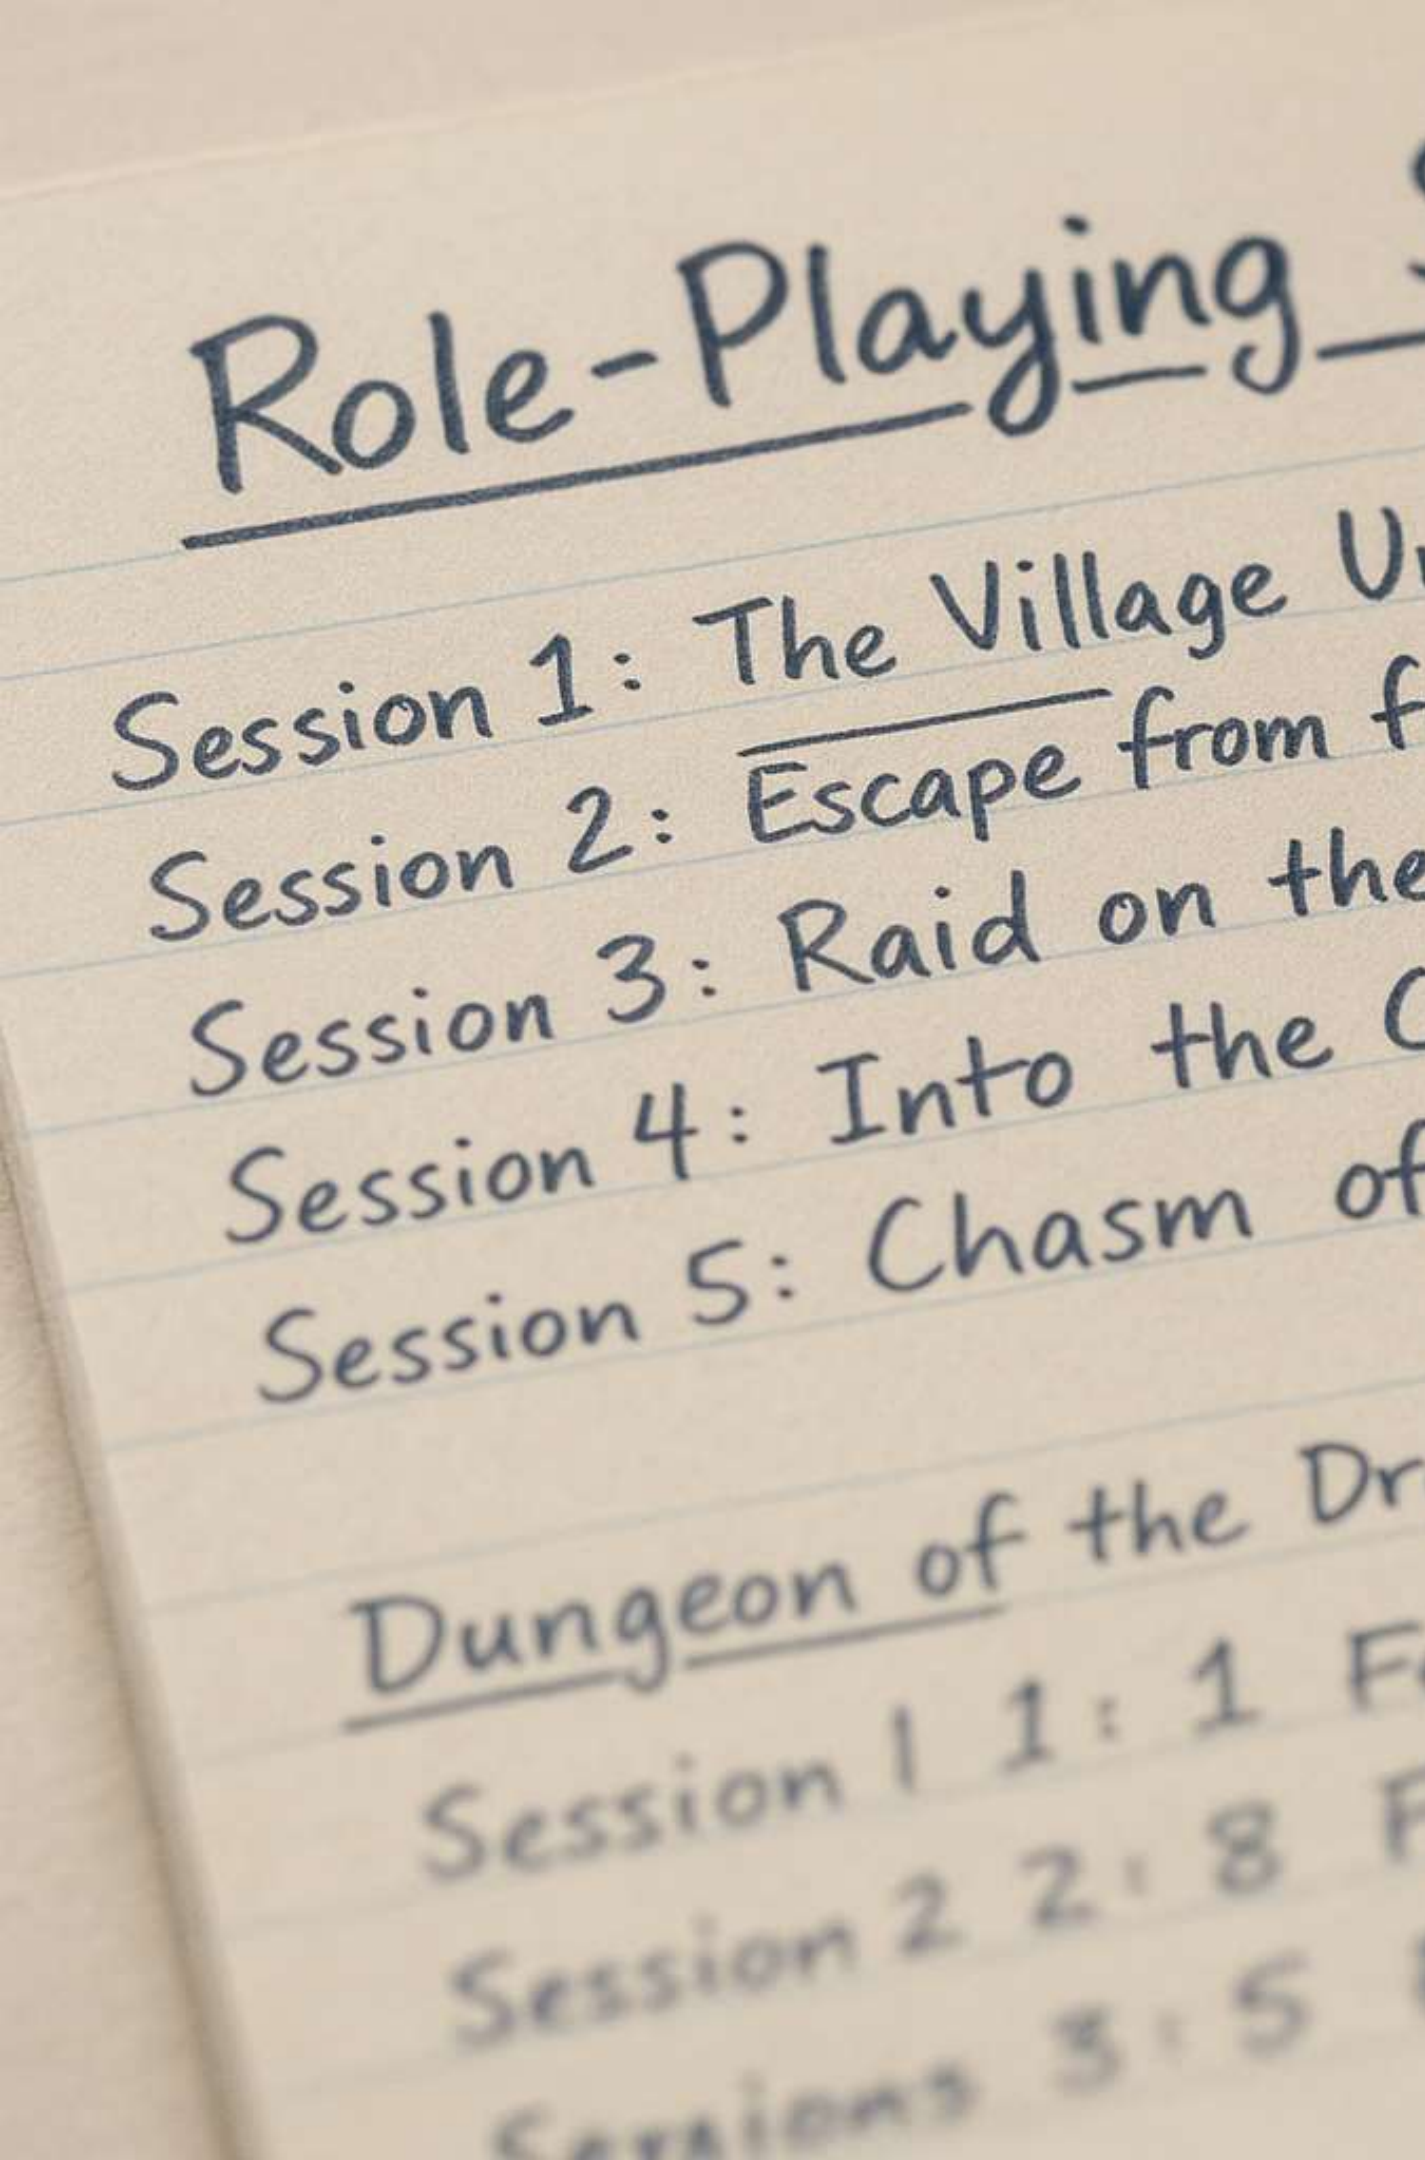 Role-Playing
Session 1: The Village
Session 2: Escape from
Session 3: Raid on the
Session 4: Into the
Session 5: Chasm of
Dungeon of the
Session 1 1: 1
Session 2 2: 8
Sessions 3: 5